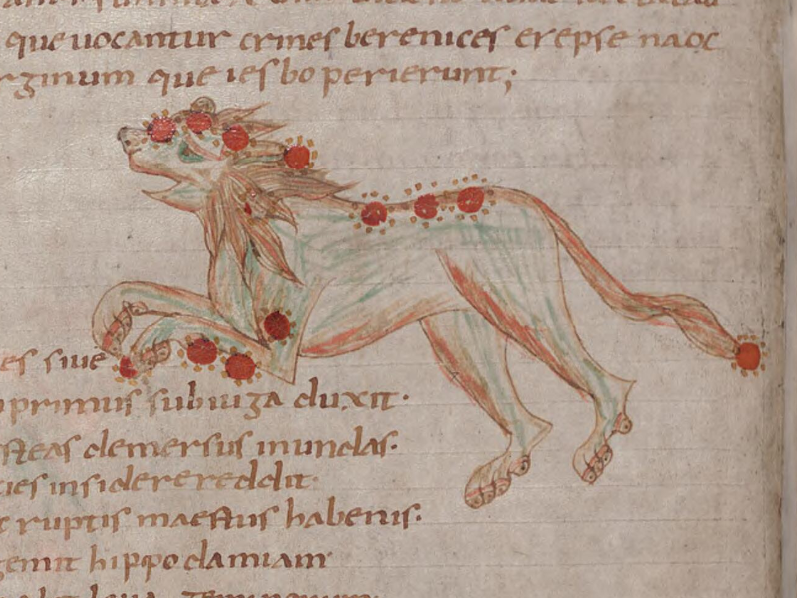 que uocantur crines berenices erepse naoc
rginum que ies bo perierunt;
es siue
primus subiuga duxit·
steas demersus inundas·
ies insidere reddit·
ruptis maestus habenis·
gemit hippodamiam